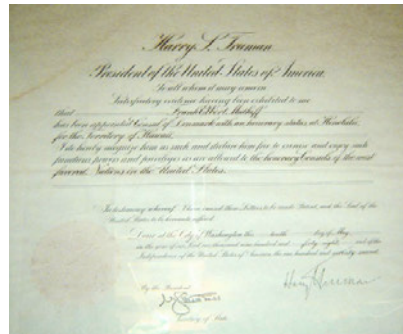 Harry S. Truman
President of the United States of America.
To all whom it may concern
Satisfactory evidence having been exhibited to me
that
has been appointed Consul of Denmark with an honorary status at Honolulu,
for the Territory of Hawaii,
I do hereby recognize him as such and declare him free to exercise and enjoy such
functions, powers and privileges as are allowed to the honorary Consuls of the most
favored Nations in the United States.
In testimony whereof I have caused these Letters to be made Patent, and the Seal of the
United States to be hereunto affixed.
Given at the City of Washington the tenth day of May,
in the year of our Lord one thousand nine hundred and forty-eight, and of the
Independence of the United States of America the one hundred and seventy-second.
By the President
Harry S. Truman
Secretary of State